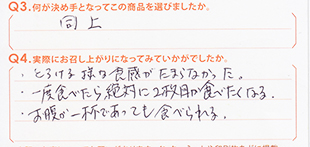 Q3.何が決め手となってこの商品を選びましたか。
同上
Q4.実際にお召し上がりになってみていかがでしたか。
・とろける様な食感がたまらなかった。
・一度食べたら絶対に2枚目が食べたくなる。
・お腹が一杯であっても食べられる。